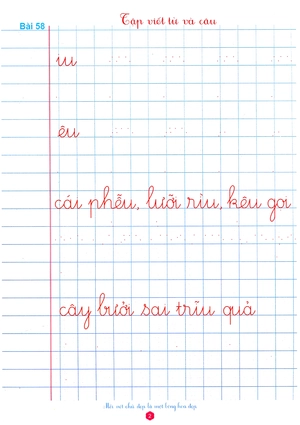 Tập viết từ và câu
Bài 58
iu
êu
cái phễu, lưỡi rìu, kêu gọi
cây bưởi sai trĩu quả
Nét viết chữ đẹp là nét lòng hoa đẹp
2